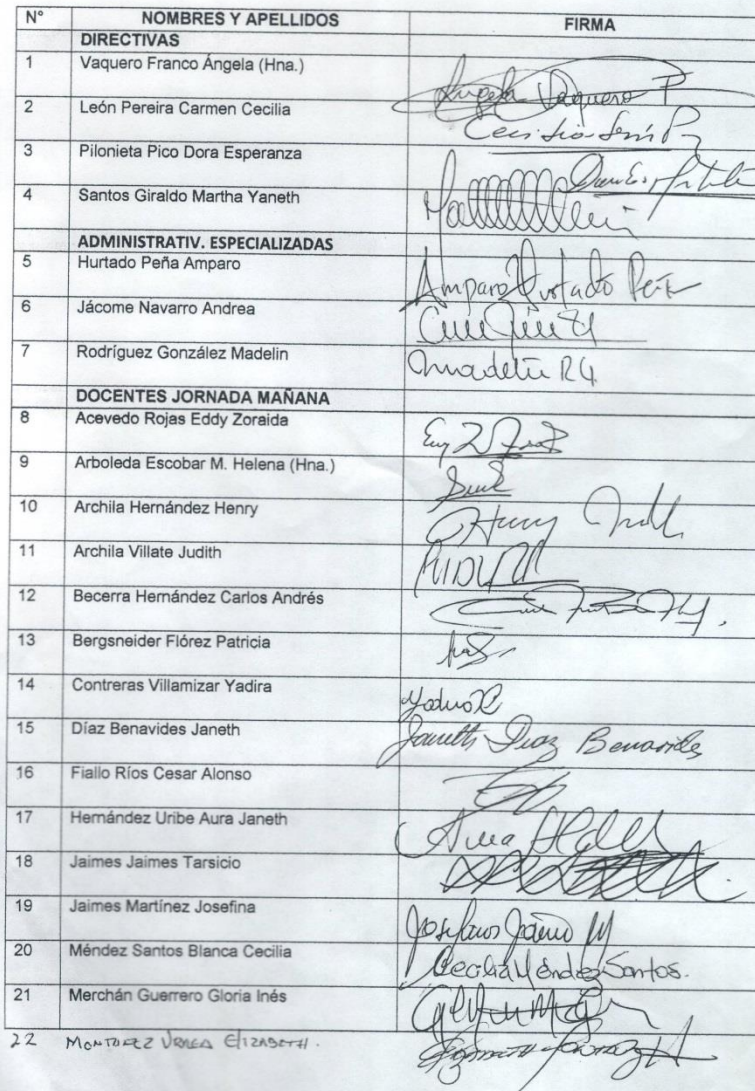 N° NOMBRES Y APELLIDOS FIRMA
DIRECTIVAS
1 Vaquero Franco Ángela (Hna.) Angela Vaquero F
2 León Pereira Carmen Cecilia
3 Pilonieta Pico Dora Esperanza
4 Santos Giraldo Martha Yaneth
ADMINISTRATIV. ESPECIALIZADAS
5 Hurtado Peña Amparo Amparo Hurtado Peña
6 Jácome Navarro Andrea
7 Rodríguez González Madelin
DOCENTES JORNADA MAÑANA
8 Acevedo Rojas Eddy Zoraida
9 Arboleda Escobar M. Helena (Hna.)
10 Archila Hernández Henry Henry
11 Archila Villate Judith
12 Becerra Hernández Carlos Andrés
13 Bergsneider Flórez Patricia
14 Contreras Villamizar Yadira
15 Díaz Benavides Janeth Janeth Diaz Benavides
16 Fiallo Ríos Cesar Alonso
17 Hernández Uribe Aura Janeth
18 Jaimes Jaimes Tarsicio
19 Jaimes Martínez Josefina
20 Méndez Santos Blanca Cecilia Cecilia Méndez Santos.
21 Merchán Guerrero Gloria Inés
22 Elizabeth.